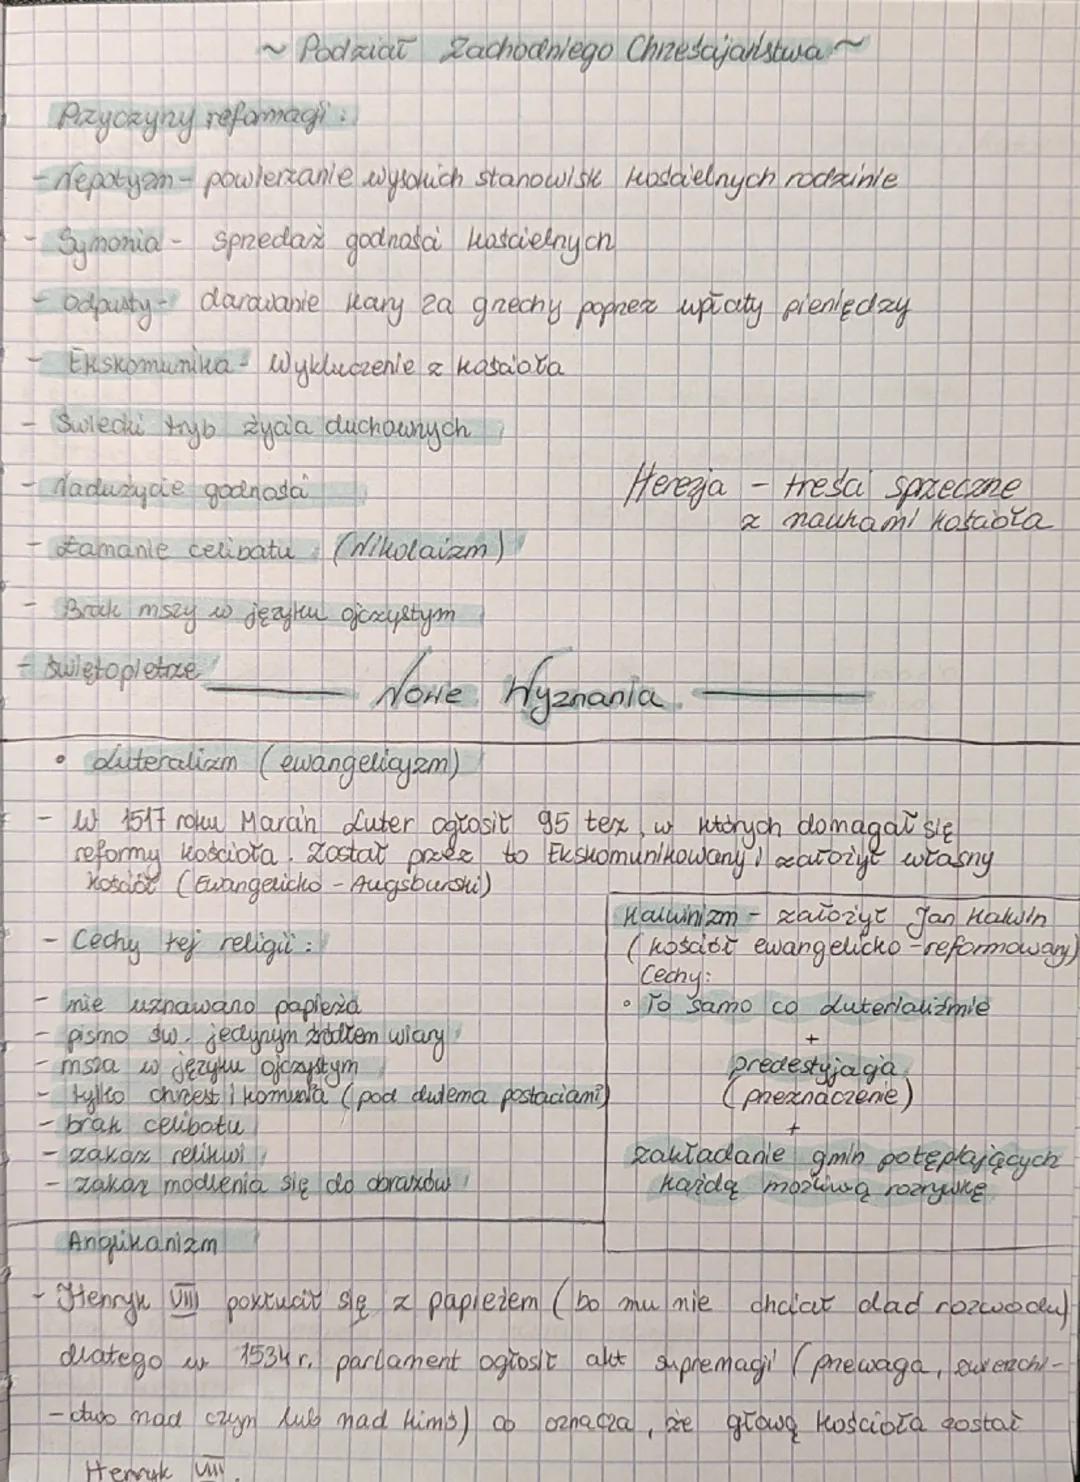 ~ Podział Zachodniego Chrześcijaństwa ~
Przyczyny reformacji :
- Nepotyzm - powierzanie wysokich stanowisk kościelnych rodzinie
- Symonia - sprzedaż godności kościelnych
- odpusty - darowanie kary za grzechy poprzez wpłaty pieniędzy
- Ekskomunika - Wykluczenie z kościoła
- Świecki tryb życia duchownych
- Nadużycie godności
Herezja - treści sprzeczne
z naukami kościoła
- Łamanie celibatu (Nikolaizm)
- Brak mszy w języku ojczystym
- świętopietrze
Nowe Wyznania
• Luteralizm (ewangelicyzm)
- W 1517 roku Marcin Luter ogłosił 95 tez, w których domagał się
reformy kościoła. Został przez to Ekskomunikowany i założył własny
kościół (Ewangelicko - Augsburski)
- Cechy tej religii :
- nie uznawano papieża
- pismo św. jedynym źródłem wiary
- msza w języku ojczystym
- tylko chrzest i komunia (pod dwiema postaciami)
- brak celibatu
- zakaz relikwi
- zakaz modlenia się do obrazów
Kalwinizm - założył Jan Kalwin
(kościół ewangelicko - reformowany)
Cechy:
• To samo co Luterialiźmie
+
predestyjacja
(przeznaczenie)
+
zakładanie gmin potępiających
każdą możliwą rozrywkę
Anglikanizm
- Henryk VIII pokłucił się z papieżem (bo mu nie chciał dać rozwodu)
dlatego w 1534 r. parlament ogłosił akt supremacji (przewaga, zwierzchi-
-ctwo nad czym lub nad kimś) co oznacza, że głową kościoła został
Henryk VIII.